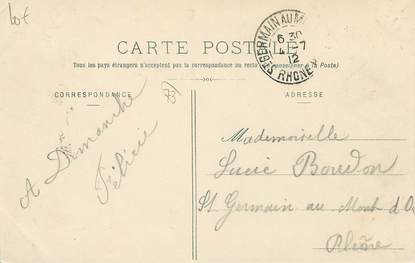 10€
CARTE POSTALE
ST GERMAIN AU M
6 30
4 - 7
12
RHONE
Tous les pays étrangers n'acceptent pas la correspondance au recto
à la Poste)
CORRESPONDANCE
ADRESSE
A Dimanche
Félicie
Mademoiselle
Lucie Boudon
St Germain au Mont d'Or
Rhône